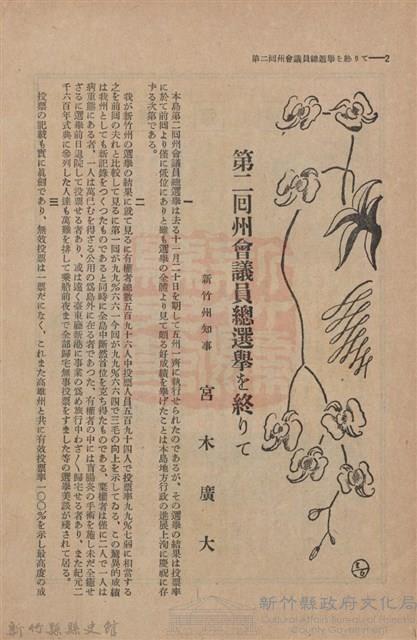 第二回州會議員總選擧を終りて——2
第二回州會議員總選擧を終りて
新竹州知事 宮木廣大
一
本島第二回州會議員總選擧は去る十一月二十日を期して五州一齊に執行せられたのであるが、その選擧の結果は投票率
に於て前回より僅に低位にありと雖も選擧の全體より見て頗る好成績を擧げたことは本島地方行政の進展上洵に慶祝に存
ずる次第である。
二
我が新竹州の選擧の結果に就て見るに有權者總數五百九十六人中投票人員五百九十四人で投票率九九％七弱に相當する
之を前回の夫れと比較して見るに第一回が九九％六六一今回が九九％六六四で三毛の向上を示してゐる、この驚異的成績
は我州としても新記錄をつくつたものであると同時に全島中斷然首位を克ち得たものである。棄權者は僅に二人で一人は
病重態にある者、一人は萬已むを得ざる公用の爲島外に在る者であつた。有權者の中には盲腸炎の手術を施し未だ全癒せ
ざるに選擧前日退院して投票せる者あり、或は遠く臺東廳新港に事業の爲め旅行中わざ〳〵歸宅せる者あり、また紀元二
千六百年式典に參列した人達も萬難を排して乘船前夜まで全部歸州無事投票をすました等の選擧美談が殘されて居る。
三
投票の記載も實に眞劍であり、無效投票は一票だになく、これまた高雄州と共に有效投票率一〇〇％を示し最高度の成
新竹縣縣史館
新竹縣政府文化局
Cultural Affairs Bureau of Hsinchu
County Government